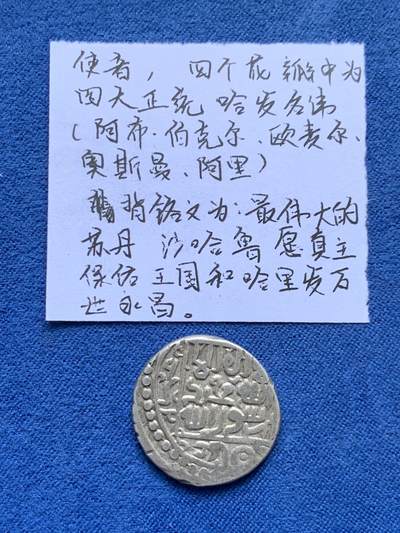 使者，四个花瓣中为
四大正统哈发名讳
(阿布·伯克尔、欧麦尔、
奥斯曼、阿里)
背铭文为:最伟大的
苏丹 沙哈鲁 愿真主
保佑王国和哈里发万
世永昌。